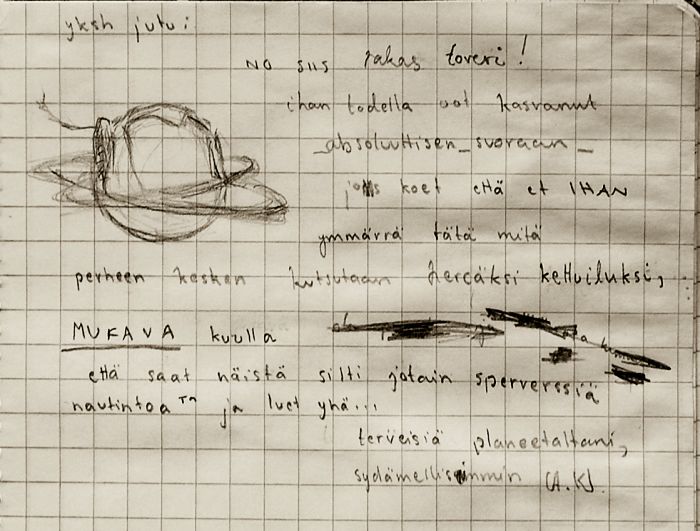 yksh jutui
NO SIIS rakas toveri!
ihan todella oot kasvanut
_absoluuttisen_suoraan_
jos koet että et IHAN
ymmärrä tätä mitä
perheen kesken kutsutaan hercäksi kettuiluksi,
MUKAVA kuulla
että saat näistä silti jotain sperverssiä
nautintoa™ ja luet yhä...
terveisiä planeetaltani,
sydämellisimmin (A.K).